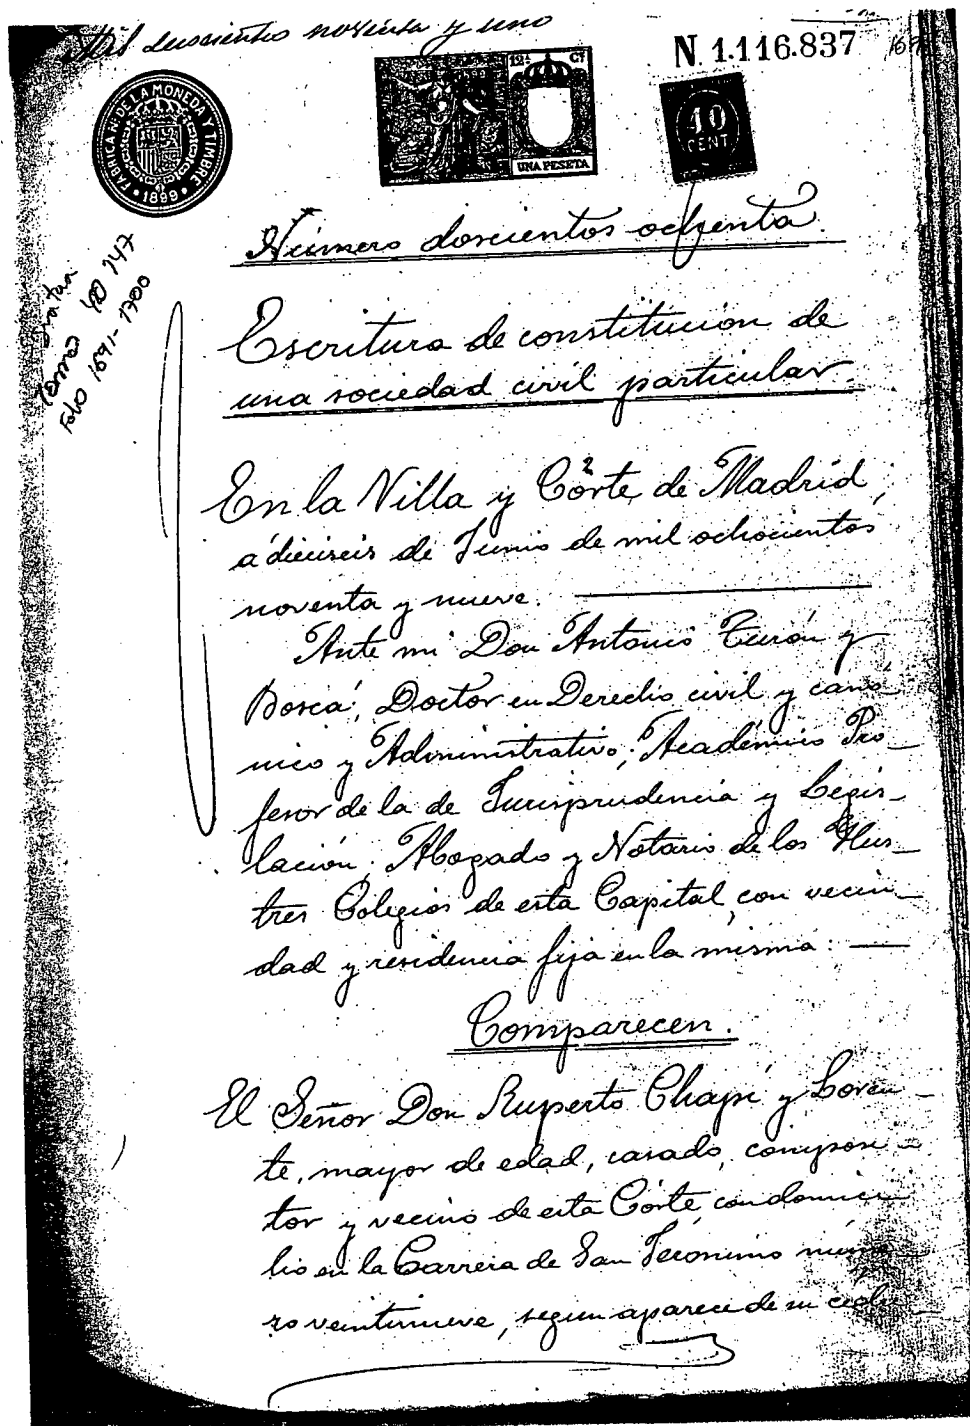 Mil duscientos noventa y uno
N. 1.116.837
169
FABRICA DE LA MONEDA Y TIMBRE
1899
12ª Cª
UNA PESETA
10
CENT
Número doscientos ochenta.
tomo 40 247
Folio 1691-1700
Escritura de constitucion de
una sociedad civil particular.
En la Villa y Córte de Madrid,
á dieciseis de Junio de mil ochocientos
noventa y nueve.
Ante mi Don Antonio Turón y
Boscá, Doctor en Derecho civil y canó-
nico y Administrativo, Académico Pro-
fesor de la de Jurisprudencia y Legis-
lación, Abogado y Notario de los Ilus-
tres Colegios de esta Capital, con vecin-
dad y residencia fija en la misma:
Comparecen.
El Señor Don Ruperto Chapí y Loren-
te, mayor de edad, casado, composi-
tor y vecino de esta Córte, con domici-
lio en la Carrera de San Jeronimo núme-
ro veintinueve, segun aparece de su cédu-